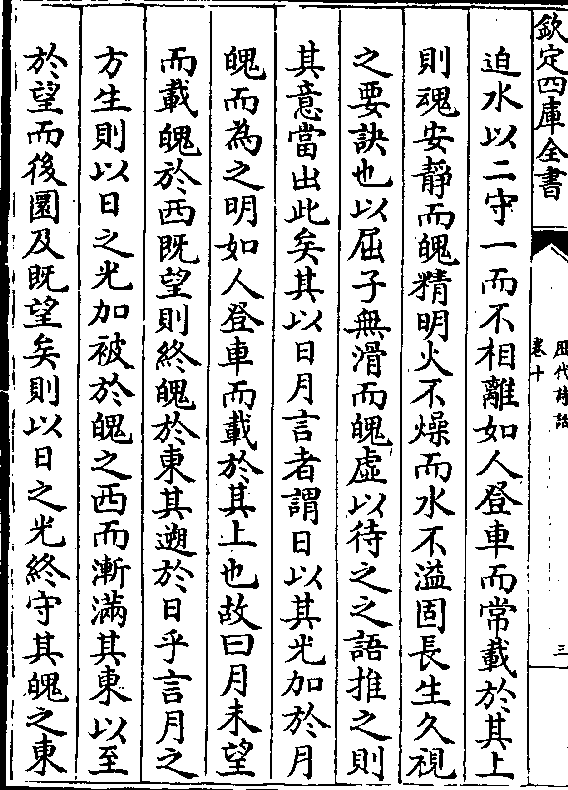 欽定四庫全書
歴代詩話
卷十
三
迫水以二守一而不相離如人登車而常載於其上
則魂安靜而魄精明火不燥而水不溢固長生久視
之要訣也以屈子無滑而魄虛以待之之語推之則
其意當出此矣其以日月言者謂日以其光加於月
魄而為之明如人登車而載於其上也故曰月未望
而載魄於西既望則終魄於東其遡於日乎言月之
方生則以日之光加被於魄之西而漸滿其東以至
於望而後圜及既望矣則以日之光終守其魄之東